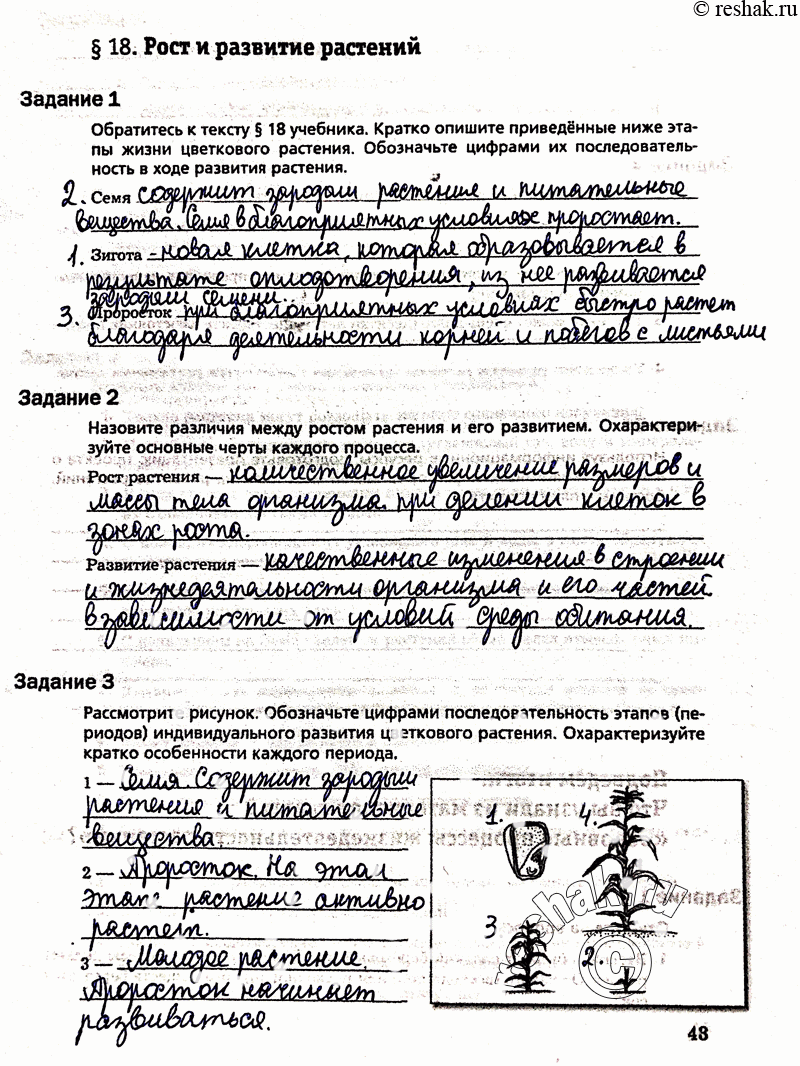 © reshak.ru
§ 18. Рост и развитие растений
Задание 1
Обратитесь к тексту § 18 учебника. Кратко опишите приведённые ниже эта-
пы жизни цветкового растения. Обозначьте цифрами их последователь-
ность в ходе развития растения.
2. Семя содержит зародыш растения и питательные
вещества. Семя в благоприятных условиях прорастает.
1. Зигота – новая клетка, которая образовывается в
результате оплодотворения, из нее развивается
зародыш семени.
3. Проросток при благоприятных условиях быстро растет
благодаря деятельности корней и побегов с листьями
Задание 2
Назовите различия между ростом растения и его развитием. Охарактери-
зуйте основные черты каждого процесса.
Рост растения — количественное увеличение размеров и
массы тела организма при делении клеток в
зонах роста.
Развитие растения — качественные изменения в строении
и жизнедеятельности организма и его частей
в зависимости от условий среды обитания.
Задание 3
Рассмотрит рисунок. Обозначьте цифрами последовательность этапов (пе-
риодов) индивидуального развития цветкового растения. Охарактеризуйте
кратко особенности каждого периода.
1 — Семя. Содержит зародыш
растения и питательные
вещества
2 — Проросток. На этом
этапе растение активно
растет.
3 — Молодое растение.
Проросток начинает
развиваться.
1. 4.
3 2.
reshak.ru
©
43